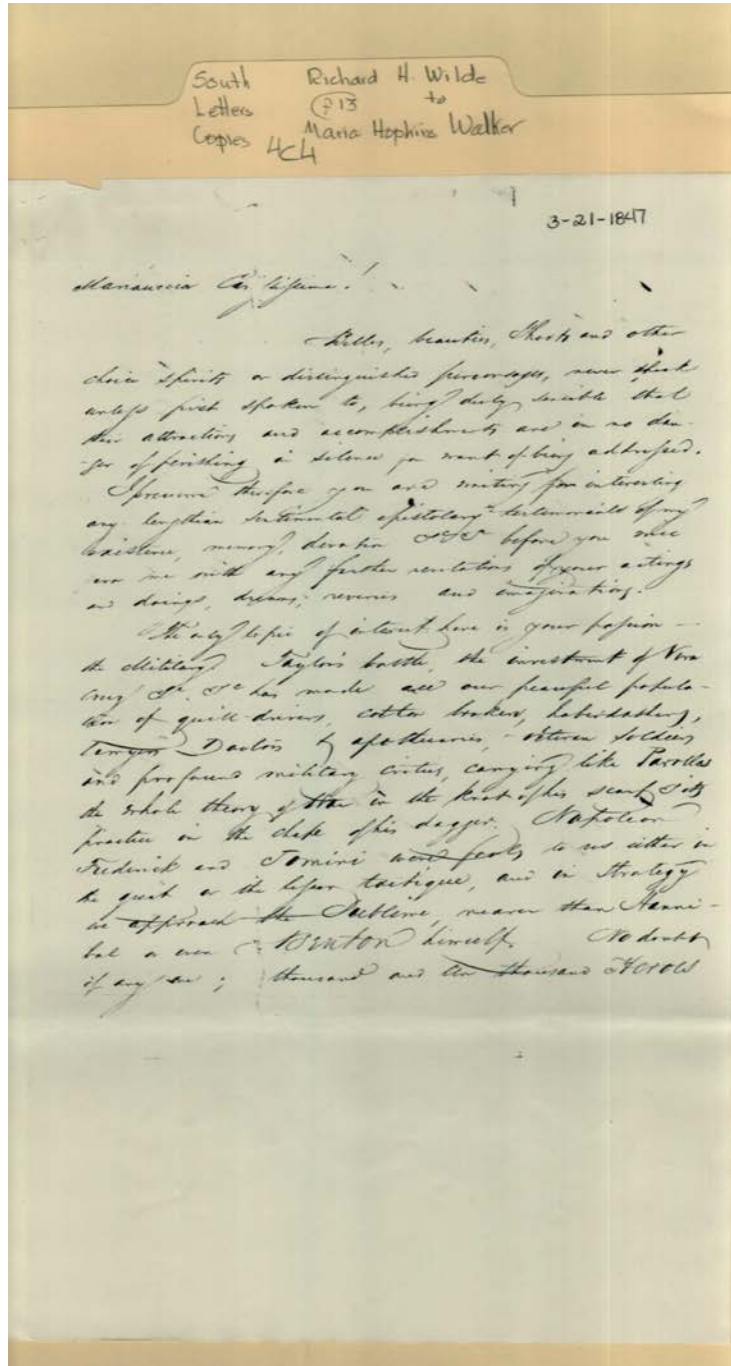 South Richard H. Wilde
Letters (P13 to
Copies Maria Hopkins Walker
4C4
3-21-1847
Belles, beauties, Ghosts and other
choice spirits or distinguished personages, never speak
unless first spoken to, being duly sensible that
their attractions and accomplishments are in no dan-
-ger of perishing in silence for want of being addressed.
I presume therefore you are waiting for interesting
any lengthier sentimental epistolary testimonials of my
existence, memory, devotion &&& before you
me with any further revelations of your actings
and doings, dreams, reveries and imaginations.
The only topic of interest here is your passion —
the Military. Taylor's battle, the investment of Vera
Cruz &c. &c has made all our peaceful popula-
tion of quill-drivers, cotton brokers, haberdashers,
lawyers Doctors & apothecaries, - veteran soldiers
and profound military critics, carrying like Parolles
the whole theory of War in the knot of his scarf & its
practice in the chape of his dagger. Napoleon
Frederick and Jomini were fools to us either in
the great or the lesser tactique, and in Strategy
we approach the Sublime, nearer than Hanni-
bal or even BENTON himself. No doubt
if any thousand and ten thousand Heroes